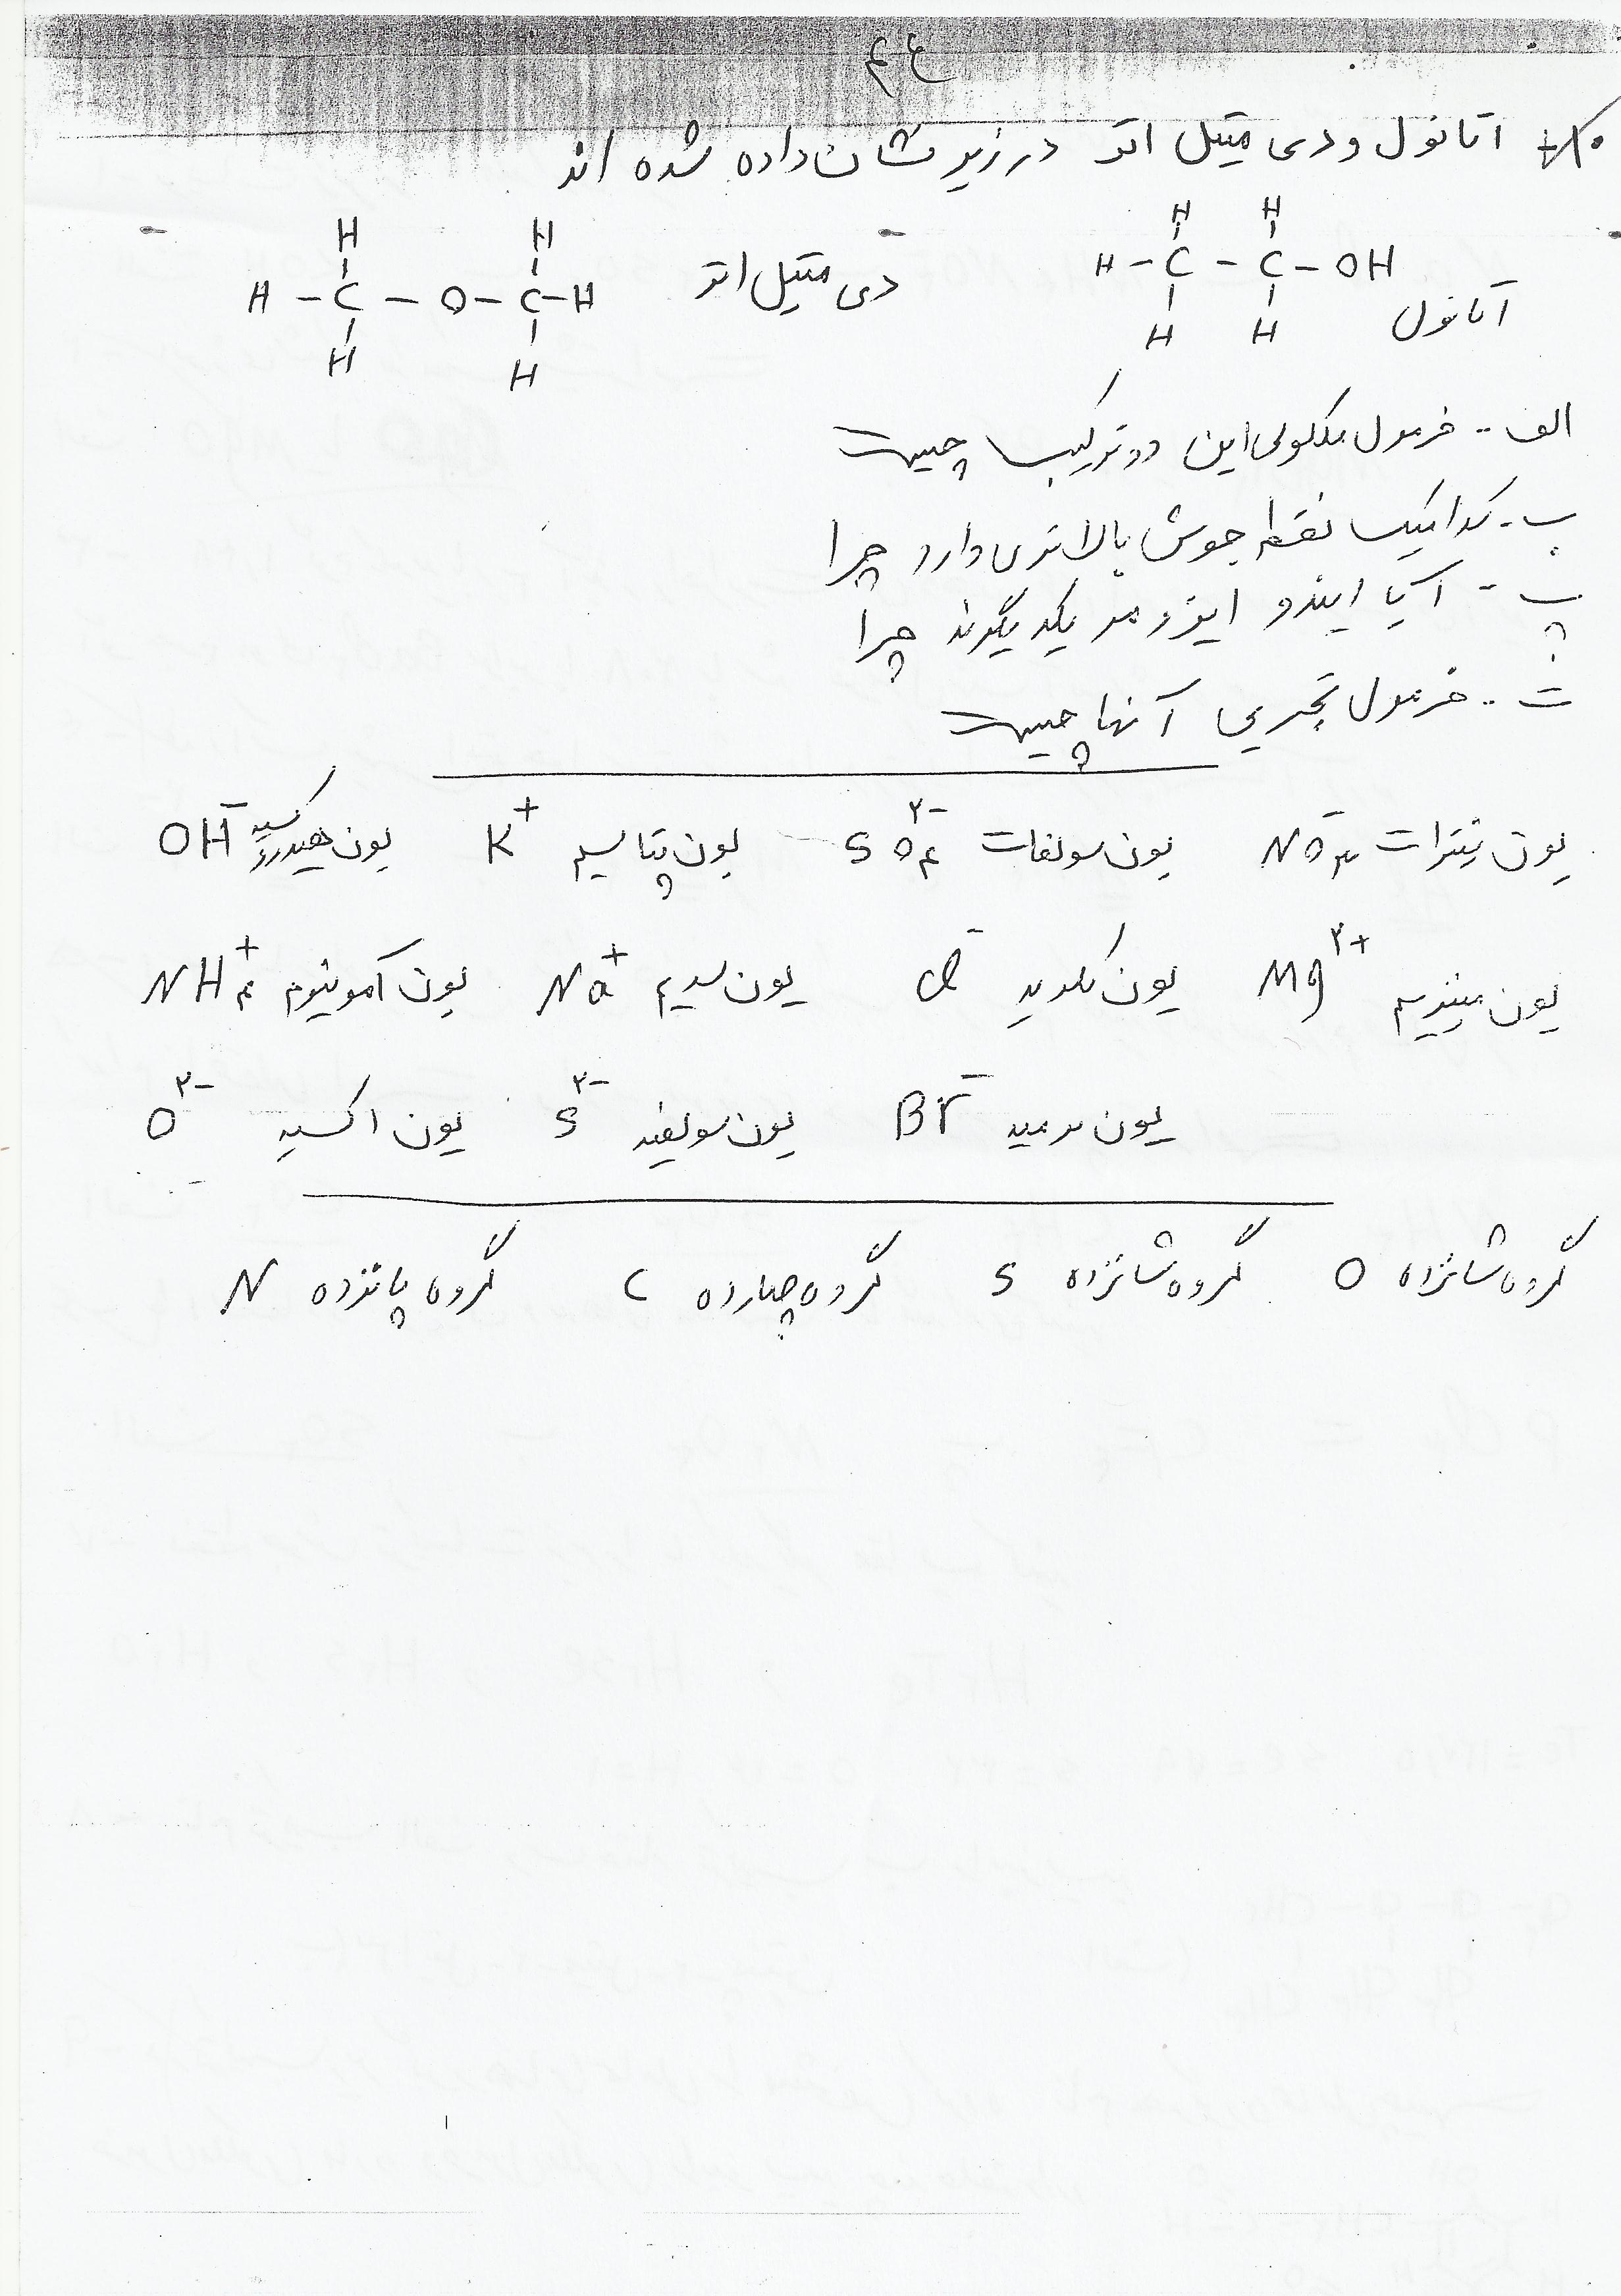 اتانول و دی متیل اتر در زیر نشان داده شده اند
H H H H
H - C - C - OH دی متیل اتر H - C - O - C - H
H H اتانول H H
الف - فرمول ملکولی این دو ترکیب چیست
ب - کدامیک نقطه جوش بالاتری دارد چرا
پ - آیا ایندو ایزومر یکدیگرند چرا
ت - فرمول تجربی آنها چیست
یون نیترات NO۳⁻ یون سولفات SO۴²⁻ یون پتاسیم K⁺ یون هیدروکسید OH⁻
یون منیزیم Mg²⁺ یون کلرید Cl⁻ یون سدیم Na⁺ یون آمونیوم NH۴⁺
یون برمید Br⁻ یون سولفید S²⁻ یون اکسید O²⁻
گروه شانزده O گروه شانزده S گروه چهارده C گروه پانزده N